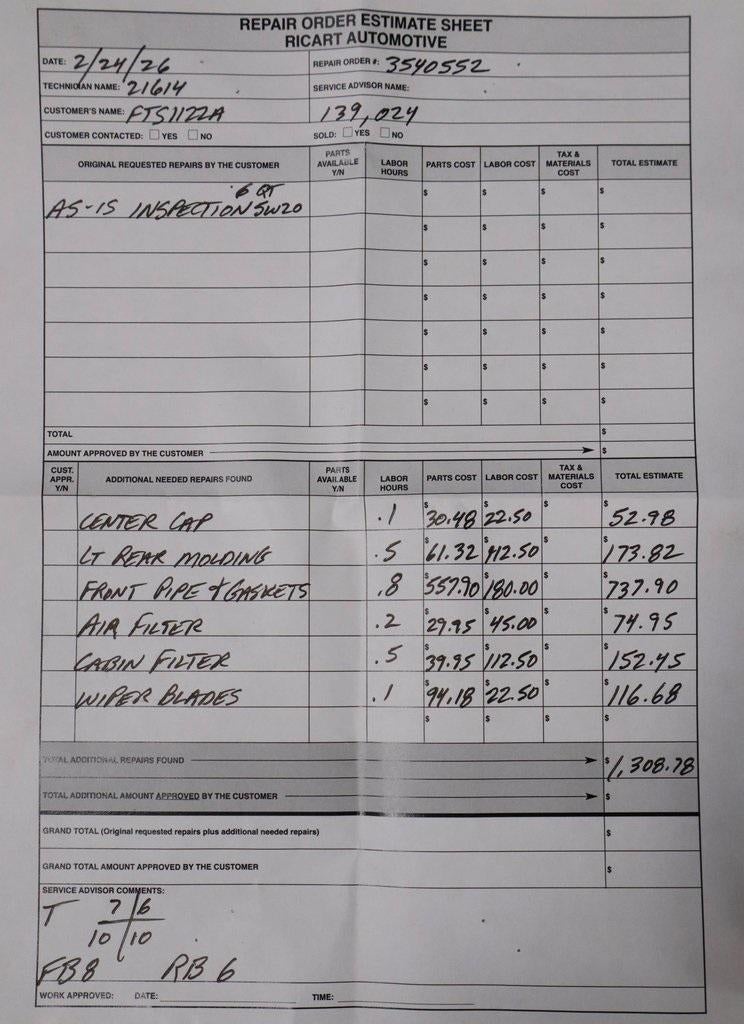 REPAIR ORDER ESTIMATE SHEET
RICART AUTOMOTIVE
DATE: 2/24/26 REPAIR ORDER #: 3540552
TECHNICIAN NAME: 21614 SERVICE ADVISOR NAME:
CUSTOMER'S NAME: FTS1122A 139,024
CUSTOMER CONTACTED: YES NO SOLD: YES NO
ORIGINAL REQUESTED REPAIRS BY THE CUSTOMER PARTS AVAILABLE Y/N LABOR HOURS PARTS COST LABOR COST TAX & MATERIALS COST TOTAL ESTIMATE
6 QT $ $ $ $
AS-IS INSPECTION 5W20
$ $ $ $
$ $ $ $
$ $ $ $
$ $ $ $
$ $ $ $
$ $ $ $
TOTAL $
AMOUNT APPROVED BY THE CUSTOMER $
CUST. APPR. Y/N ADDITIONAL NEEDED REPAIRS FOUND PARTS AVAILABLE Y/N LABOR HOURS PARTS COST LABOR COST TAX & MATERIALS COST TOTAL ESTIMATE
CENTER CAP .1 $30.48 $22.50 $ $52.98
LT REAR MOLDING .5 $61.32 $112.50 $ $173.82
FRONT PIPE & GASKETS .8 $557.90 $180.00 $ $737.90
AIR FILTER .2 $29.95 $45.00 $ $74.95
CABIN FILTER .5 $39.95 $112.50 $ $152.45
WIPER BLADES .1 $94.18 $22.50 $ $116.68
$ $ $ $
TOTAL ADDITIONAL REPAIRS FOUND $1,308.78
TOTAL ADDITIONAL AMOUNT APPROVED BY THE CUSTOMER $
GRAND TOTAL (Original requested repairs plus additional needed repairs) $
GRAND TOTAL AMOUNT APPROVED BY THE CUSTOMER $
SERVICE ADVISOR COMMENTS:
T 7 6
10 10
FB8 RB 6
WORK APPROVED: DATE: TIME: